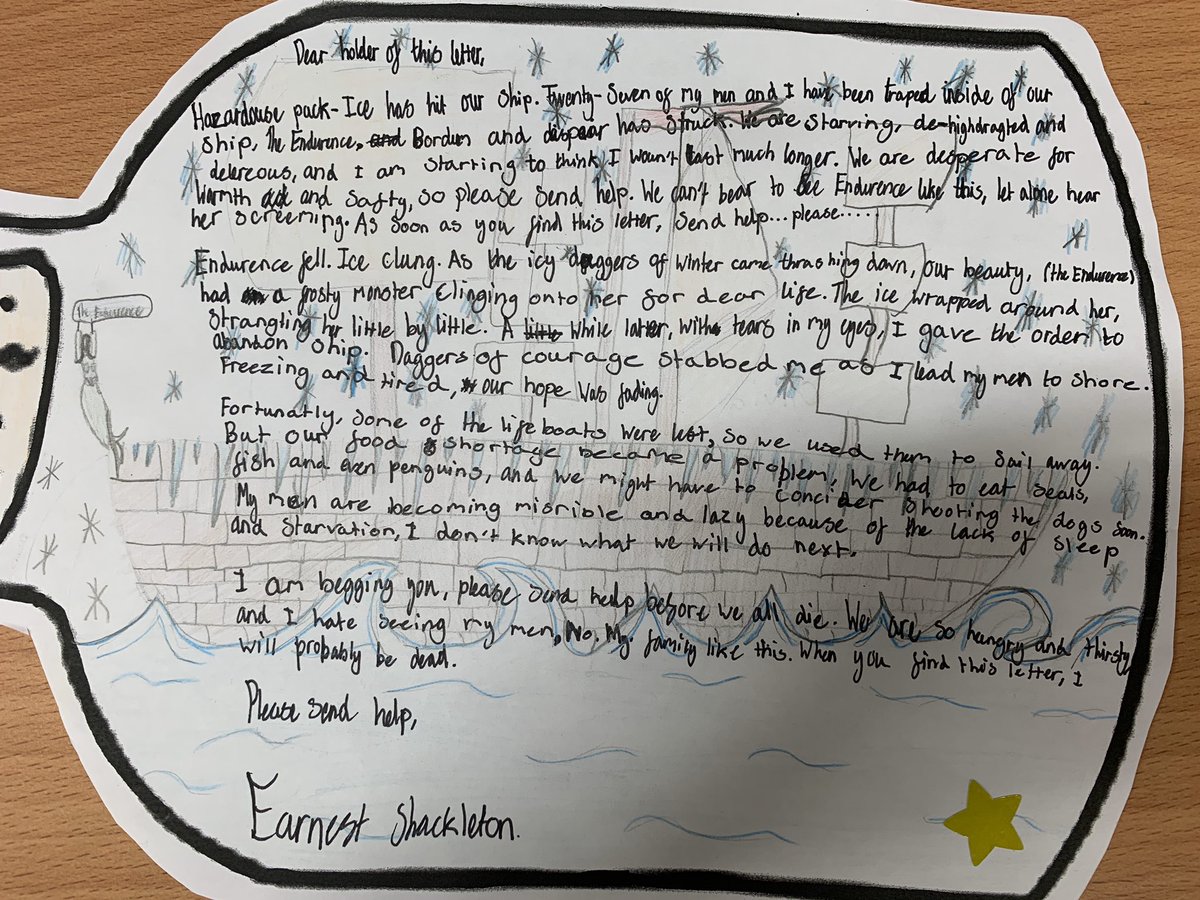 Dear holder of this letter,
Hazardouse pack-Ice has hit our ship. Twenty-Seven of my men and I have been traped inside of our
ship, The Endurence, and Bordum and despear has struck. We are starving, de-highdragted and
delereous, and I am starting to think I woun't last much longer. We are desperate for
warmth and and safty, so please send help. We can't bear to see Endurence like this, let alone hear
her screeming. As soon as you find this letter, send help...please.....
Endurence fell. Ice clung. As the icy daggers of winter came thrashing down, our beauty, (the Endurence)
had a frosty monster clinging onto her for dear life. The ice wrapped around her,
strangling her little by little. A little while latter, with tears in my eyes, I gave the order to
abandon ship. Daggers of courage stabbed me as I lead my men to shore.
Freezing and tired, our hope was fading.
Fortunatly, some of the lifeboats were left, so we used them to sail away.
But our food shortage became a problem. We had to eat seals,
fish and even penguins, and we might have to concider shooting the dogs soon.
My men are becoming misrible and lazy because of the lack of sleep
and starvation, I don't know what we will do next.
I am begging you, please send help before we all die. We are so hungry and thirsty
and I hate seeing my men, No, My family like this. When you find this letter, I
will probably be dead.
Please send help,
Earnest Shackleton.
The Endurence